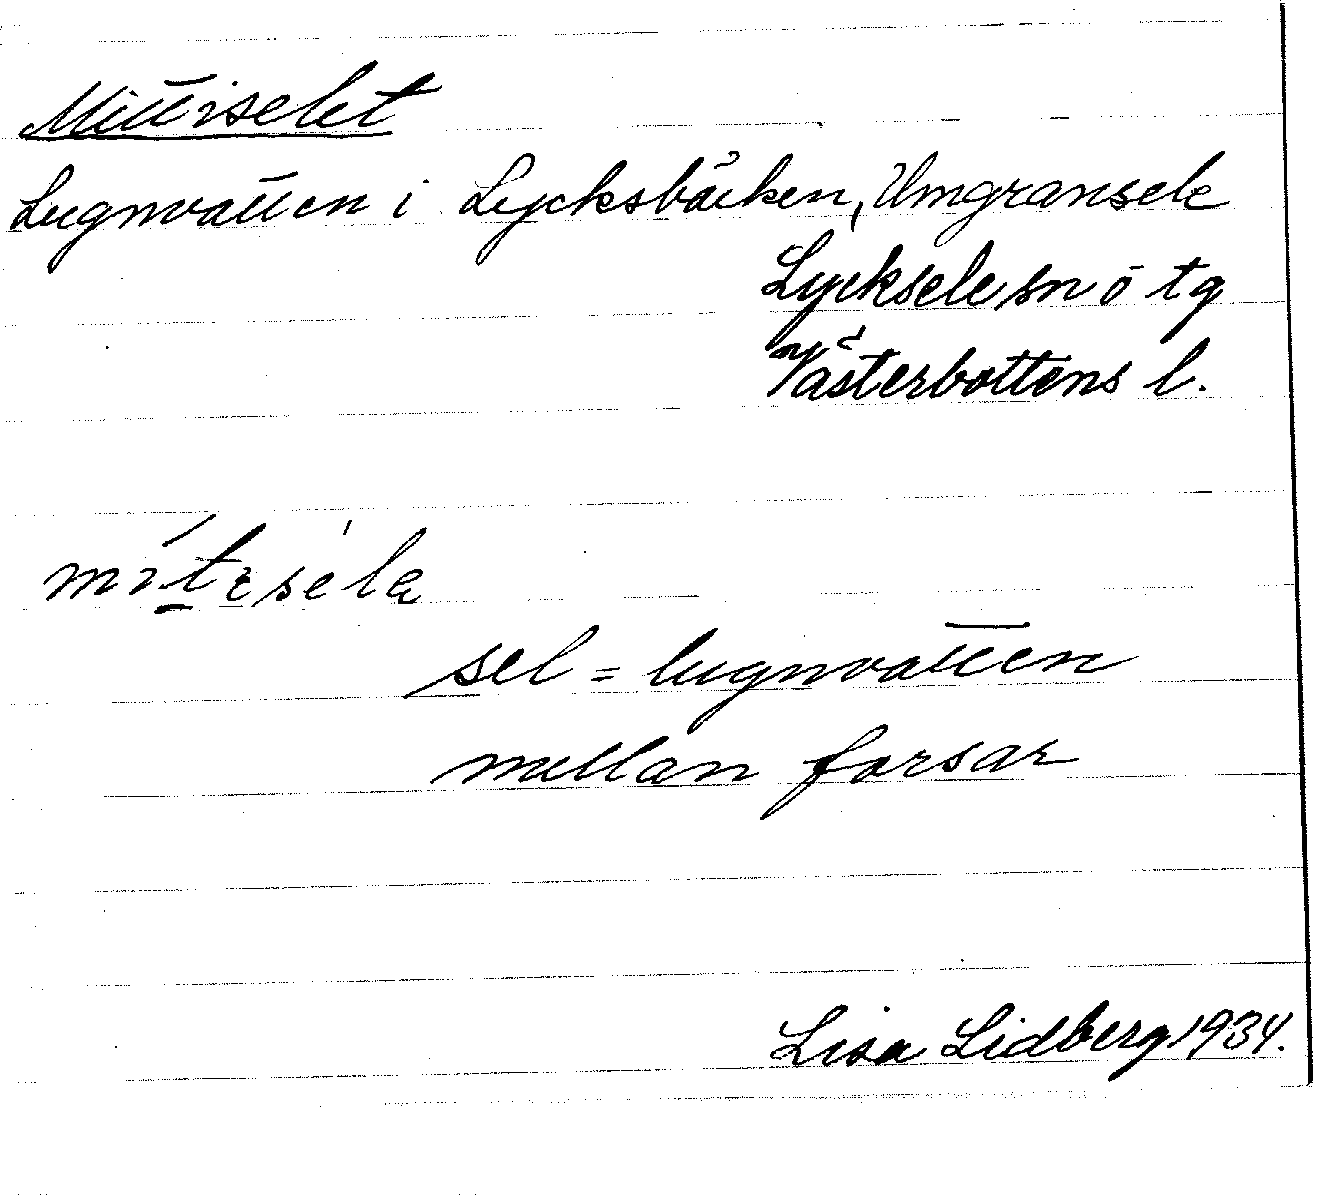 Mittiselet
Lugnvatten i Lycksbäcken, Umgransele
Lycksele sn o tg
Västerbottens l.
sel = lugnvatten
mellan forsar
Lisa Lidberg 1934.